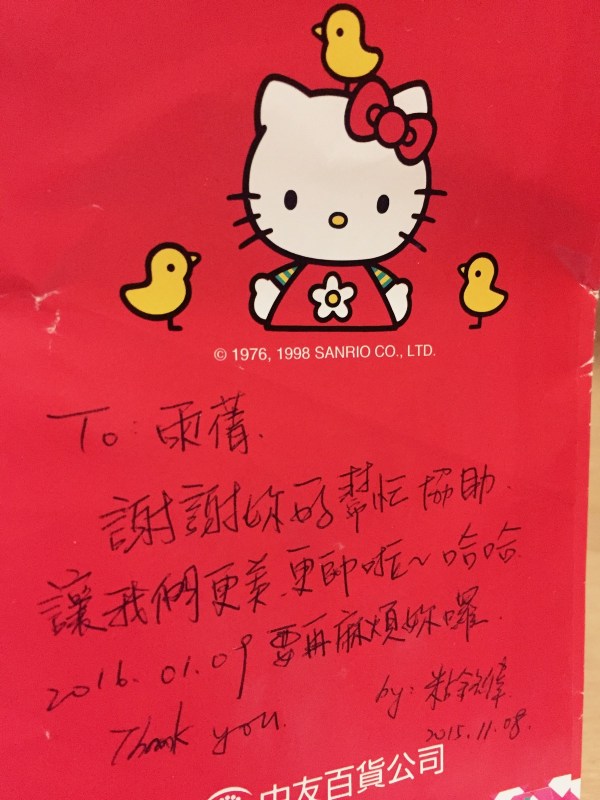 © 1976, 1998 SANRIO CO., LTD.
To: 雨蒨.
謝謝妳的幫忙協助.
讓我們更美.更帥啦~哈哈
2016.01.09 要再麻煩妳囉.
Thank you.
by:
2015.11.08.
中友百貨公司